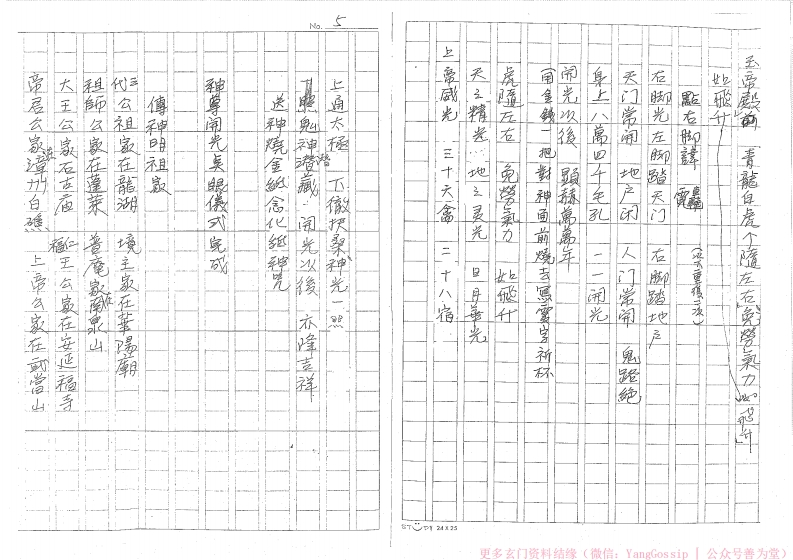 玉帝殿前 青龍白虎个隨左右 免勞氣力 如飛升
如飛升
點右脚諱
右脚光左脚踏天门 右脚踏地户
天门常開 地户闭 人门常開 鬼路絕
身上八萬四千毛孔 一一開光
開光以後 顯赫萬萬年
(用金錢一把對神面前燒去寫靈字祈杯
虎隨左右 免勞氣力 如飛升
天之精光 地之灵光 日月華光
上帝威光 三十六禽 二十八宿
No. 5
上通太極 下徹扶桑 神光一照
照鬼神潛藏 開光以後 亦降吉祥
送神燒金紙念化紙神咒
神尊開光点眼儀式完成
傳神明祖家
三代公祖家在龍湖 境主家在華陽廟
祖師公家在蓬萊 普庵家在南泉山
大王公家右古庙 仁福王公家在安延福寺
帝君公家在漳州白礁 上帝公家在武當山
24X25
更多玄门资料结缘（微信：YangGossip | 公众号善为堂）